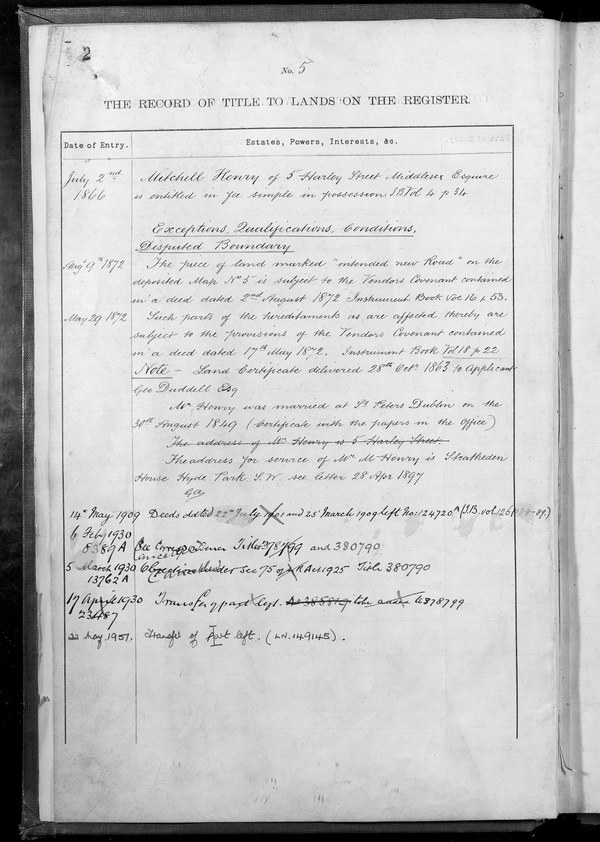 2
No. 5
THE RECORD OF TITLE TO LANDS ON THE REGISTER.
Date of Entry.
Estates, Powers, Interests, &c.
July 2nd 1866
Mitchell Henry of 5 Harley Street Middlesex Esquire
is entitled in fee simple in possession I.B Vol 4 p 34
Exceptions, Qualifications, Conditions,
Disputed Boundary
Augt 9th 1872
The piece of land marked "intended new Road" on the
deposited Map No 5 is subject to the Vendors Covenant contained
in a deed dated 2nd August 1872 Instrument Book Vol 16 p 53.
May 29 1872
Such parts of the hereditaments as are affected thereby are
subject to the provisions of the Vendors Covenant contained
in a deed dated 17th May 1872. Instrument Book Vol 18 p 22
Note - Land Certificate delivered 28th Octr 1863 to Applicant
Geo Duddell Esq
Mr Henry was married at St Peters Dublin on the
30th August 1849 (Certificate with the papers in the Office)
The address of Mr Henry is 5 Harley Street.
The address for service of Mr M Henry is Stratheden
House Hyde Park S.W. see letter 28 Apr 1897
14th May 1909
Deeds dated 22nd July 1901 and 25 March 1909 left No: 124720A (I.B. vol 126
6 Feb 1930
8389A
Titles 378799 and 380790
5 March 1930
13762A
under Sec 75 of Act 1925 Title 380790
17 April 1930
23487
Transfer of part left. 378799
22 May 1957.
Transfer of Part left. (LN.149145).